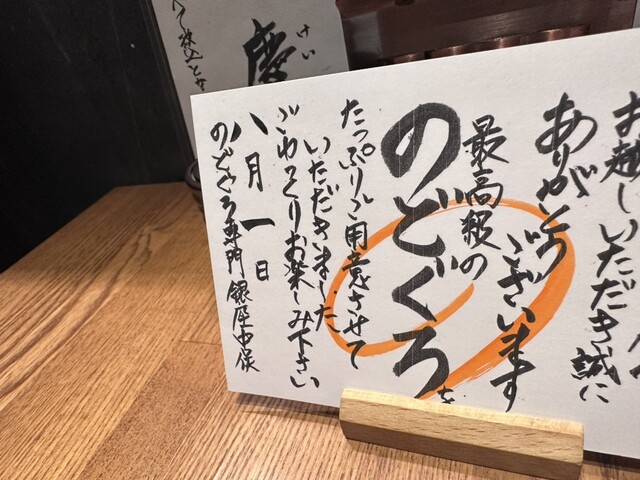 お越しいただき誠に
ありがとうございます
最高級の
のどぐろを
たっぷりご用意させて
いただきました
ごゆっくりお楽しみ下さい
八月一日
のどぐろ専門銀座中俣
けい
慶